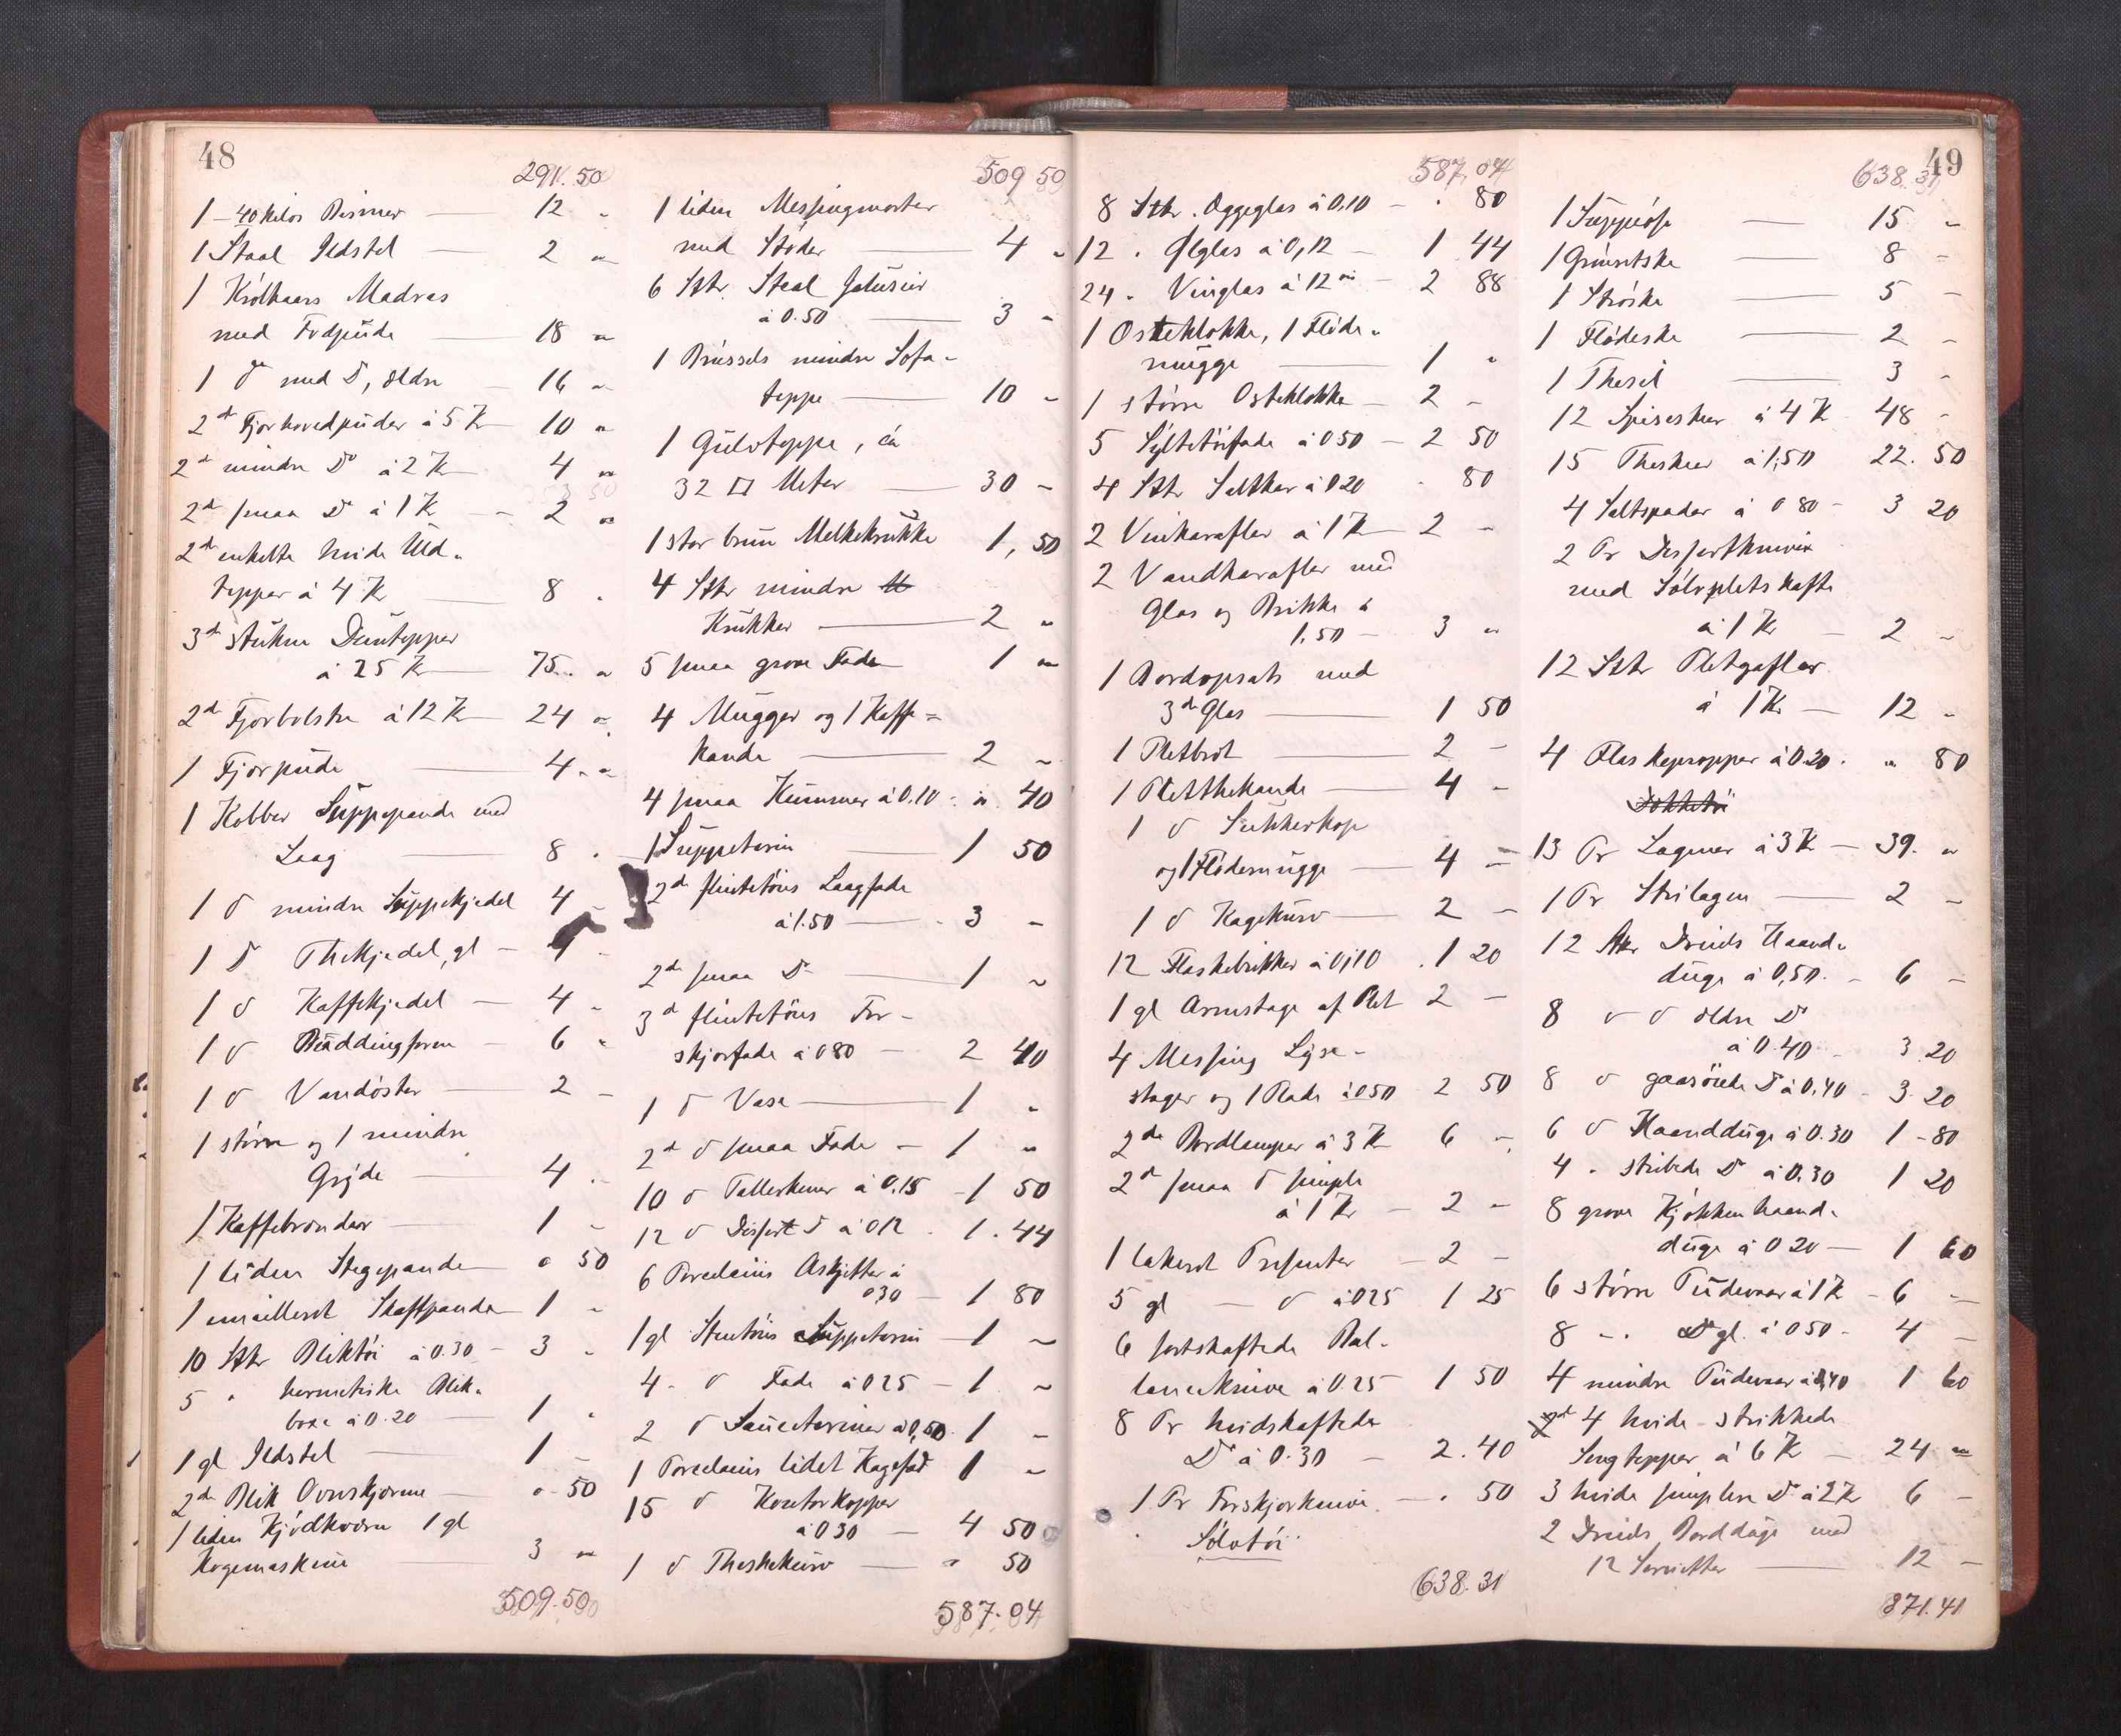 48
291.50
1 - 40 Kilos Bismer — 12 "
1 Staal Ildstel — 2 "
1 Krölhaars Madras
med Fodpude — 18 "
1 do med Do, ældre — 16 "
2de Fjørhovedpuder á 5 K 10 "
2de mindre Do á 2 K 4 "
2de smaa Do á 1 K — 2 "
2de enkelte hvide Uld-
tepper á 4 K — 8 "
3de stukne Duntepper
á 25 K — 75. "
2de Fjorbolstre á 12 K 24 "
1 Fjørpude — 4 "
1 Kobber Suppepande med
Laag — 8 "
1 do mindre Suppekjedel 4 "
1 Do Thekjedel, gl — 4 "
1 do Kaffekjedel — 4 "
1 do Buddingform — 6 "
1 do Vandöster — 2 "
1 större og 1 mindre
Gryde — 4 "
1 Kaffebrænder — 1 "
1 liden Stegepande — " 50
1 emailleret Skaftpande — 1 "
10 Stkr Bliktöi á 0.30 — 3 "
5 " hermetiske Blik-
boxe á 0.20 — 1 "
1 gl Ildstel — 1 "
2de Blik Ovnskjerme — " 50
1 liden Kjödkværn 1 gl
Kogemaskine — 3 "
509.50
509 50
1 liden Messingmorter
med Stöder — 4 "
6 Stkr. Staal Jalusier
á 0.50 — 3 "
1 Brüssels mindre Sofa-
teppe — 10 "
1 Gulvteppe, ca
32 □ Meter — 30 "
1 stor brun Melkekrukke 1,50
4 Stkr mindre
Krukker — 2 "
5 smaa grove Fade 1 "
4 Mugger og 1 Kaffe-
kande — 2 "
4 smaa Kummer á 0.10 " 40
1 Suppeterin — 1 50
2de flintetöis Laagfade
á 1.50 — 3 "
2de smaa Do — 1 "
3de flintetöis For-
skjærfade á 0 80 — 2 40
1 do Vase — 1 "
2de do smaa Fade — 1 "
10 do Tallerkener á 0.15 — 1 50
12 do Dessert do á 0 12 1.44
6 Porcelains Askjetter á
0.30 — 1 80
1 gl Stentöis Suppeterin — 1 "
4 " do Fade á 0 25 — 1 "
2 do Sauceteriner á 0,50. 1 "
1 Porcelains lidet Kagefad 1 "
15 do Kontorkopper
á 0 30 — 4 50
1 do Theskekurv — " 50
587.04
587.04
8 Stkr. Æggeglas á 0.10 — " 80
12 " Ølglas á 0,12 — 1 44
24 " Vinglas á 12 øre — 2 88
1 Osteklokke, 1 Flöde-
mugge — 1 "
1 större Osteklokke — 2 "
5 Syltetöifade á 0 50 — 2 50
4 Stkr Saltkar á 0 20 " 80
2 Vinkarafler á 1 K 2 "
2 Vandkarafler med
Glas og Brikke á
1.50 — 3 "
1 Bordopsats med
3de Glas — 1 50
1 Pletbræt — 2 "
1 Pletthekande — 4 "
1 do Sukkerkop
og 1 Flödemugge — 4 "
1 do Kagekurv — 2 "
12 Flaskebrikker á 0,10 . 1 20
1 gl Armstage af Plet 2 "
4 Messing Lyse-
stager og 1 Plade á 0 50 2 50
2de Bordlamper á 3 K 6 "
2de smaa do simple
á 1 Kr — 2 "
1 lakeret Presenter — 2 "
5 gl — do á 0 25 1 25
6 sortskaftede Bal-
lanceknive á 0.25 1 50
8 Pr hvidskaftede
Do á 0.30 — 2.40
1 Pr Forskjærknive. — " 50
Sölvtöi
638.31
49
638.31
1 Suppeöse — 15 "
1 Grönsetske — 8 "
1 Ströske — 5 "
1 Flödeske — 2 "
1 Thesil — 3 "
12 Spiseskeer á 4 K 48 "
15 Theskeer á 1,50 22.50
4 Saltspader á 0 80 — 3 20
2 Pr Dessertknive
med Sölvpletskafte
á 1 Kr — 2 "
12 Stkr Pletgafler
á 1 Kr — 12 "
4 Flaskepropper á 0.20. " 80
Dækketöi
13 Pr Lagener á 3 K — 39. "
1 Pr Strilagen — 2 "
12 Stkr Dreiels Haand-
duge á 0,50. — 6 "
8 " do ældre Do
á 0.40 3.20
8 do gaasöiede Do á 0.40 — 3.20
6 do Haandduge á 0.30 1 - 80
4 " stribede Do á 0.30 1 20
8 grove Kjökkenhaand-
duge á 0 20 — 1 60
6 större Pudevaar á 1 K — 6 "
8 " " Do gl. á 0 50 — 4 "
4 mindre Pudevaar á 0,40 1 60
4 hvide strikkede
Sengtepper á 6 K — 24 "
3 hvide simplere Do á 2 K 6 "
2 Dreiels Borddüge med
12 Servietter — 12 "
871.41